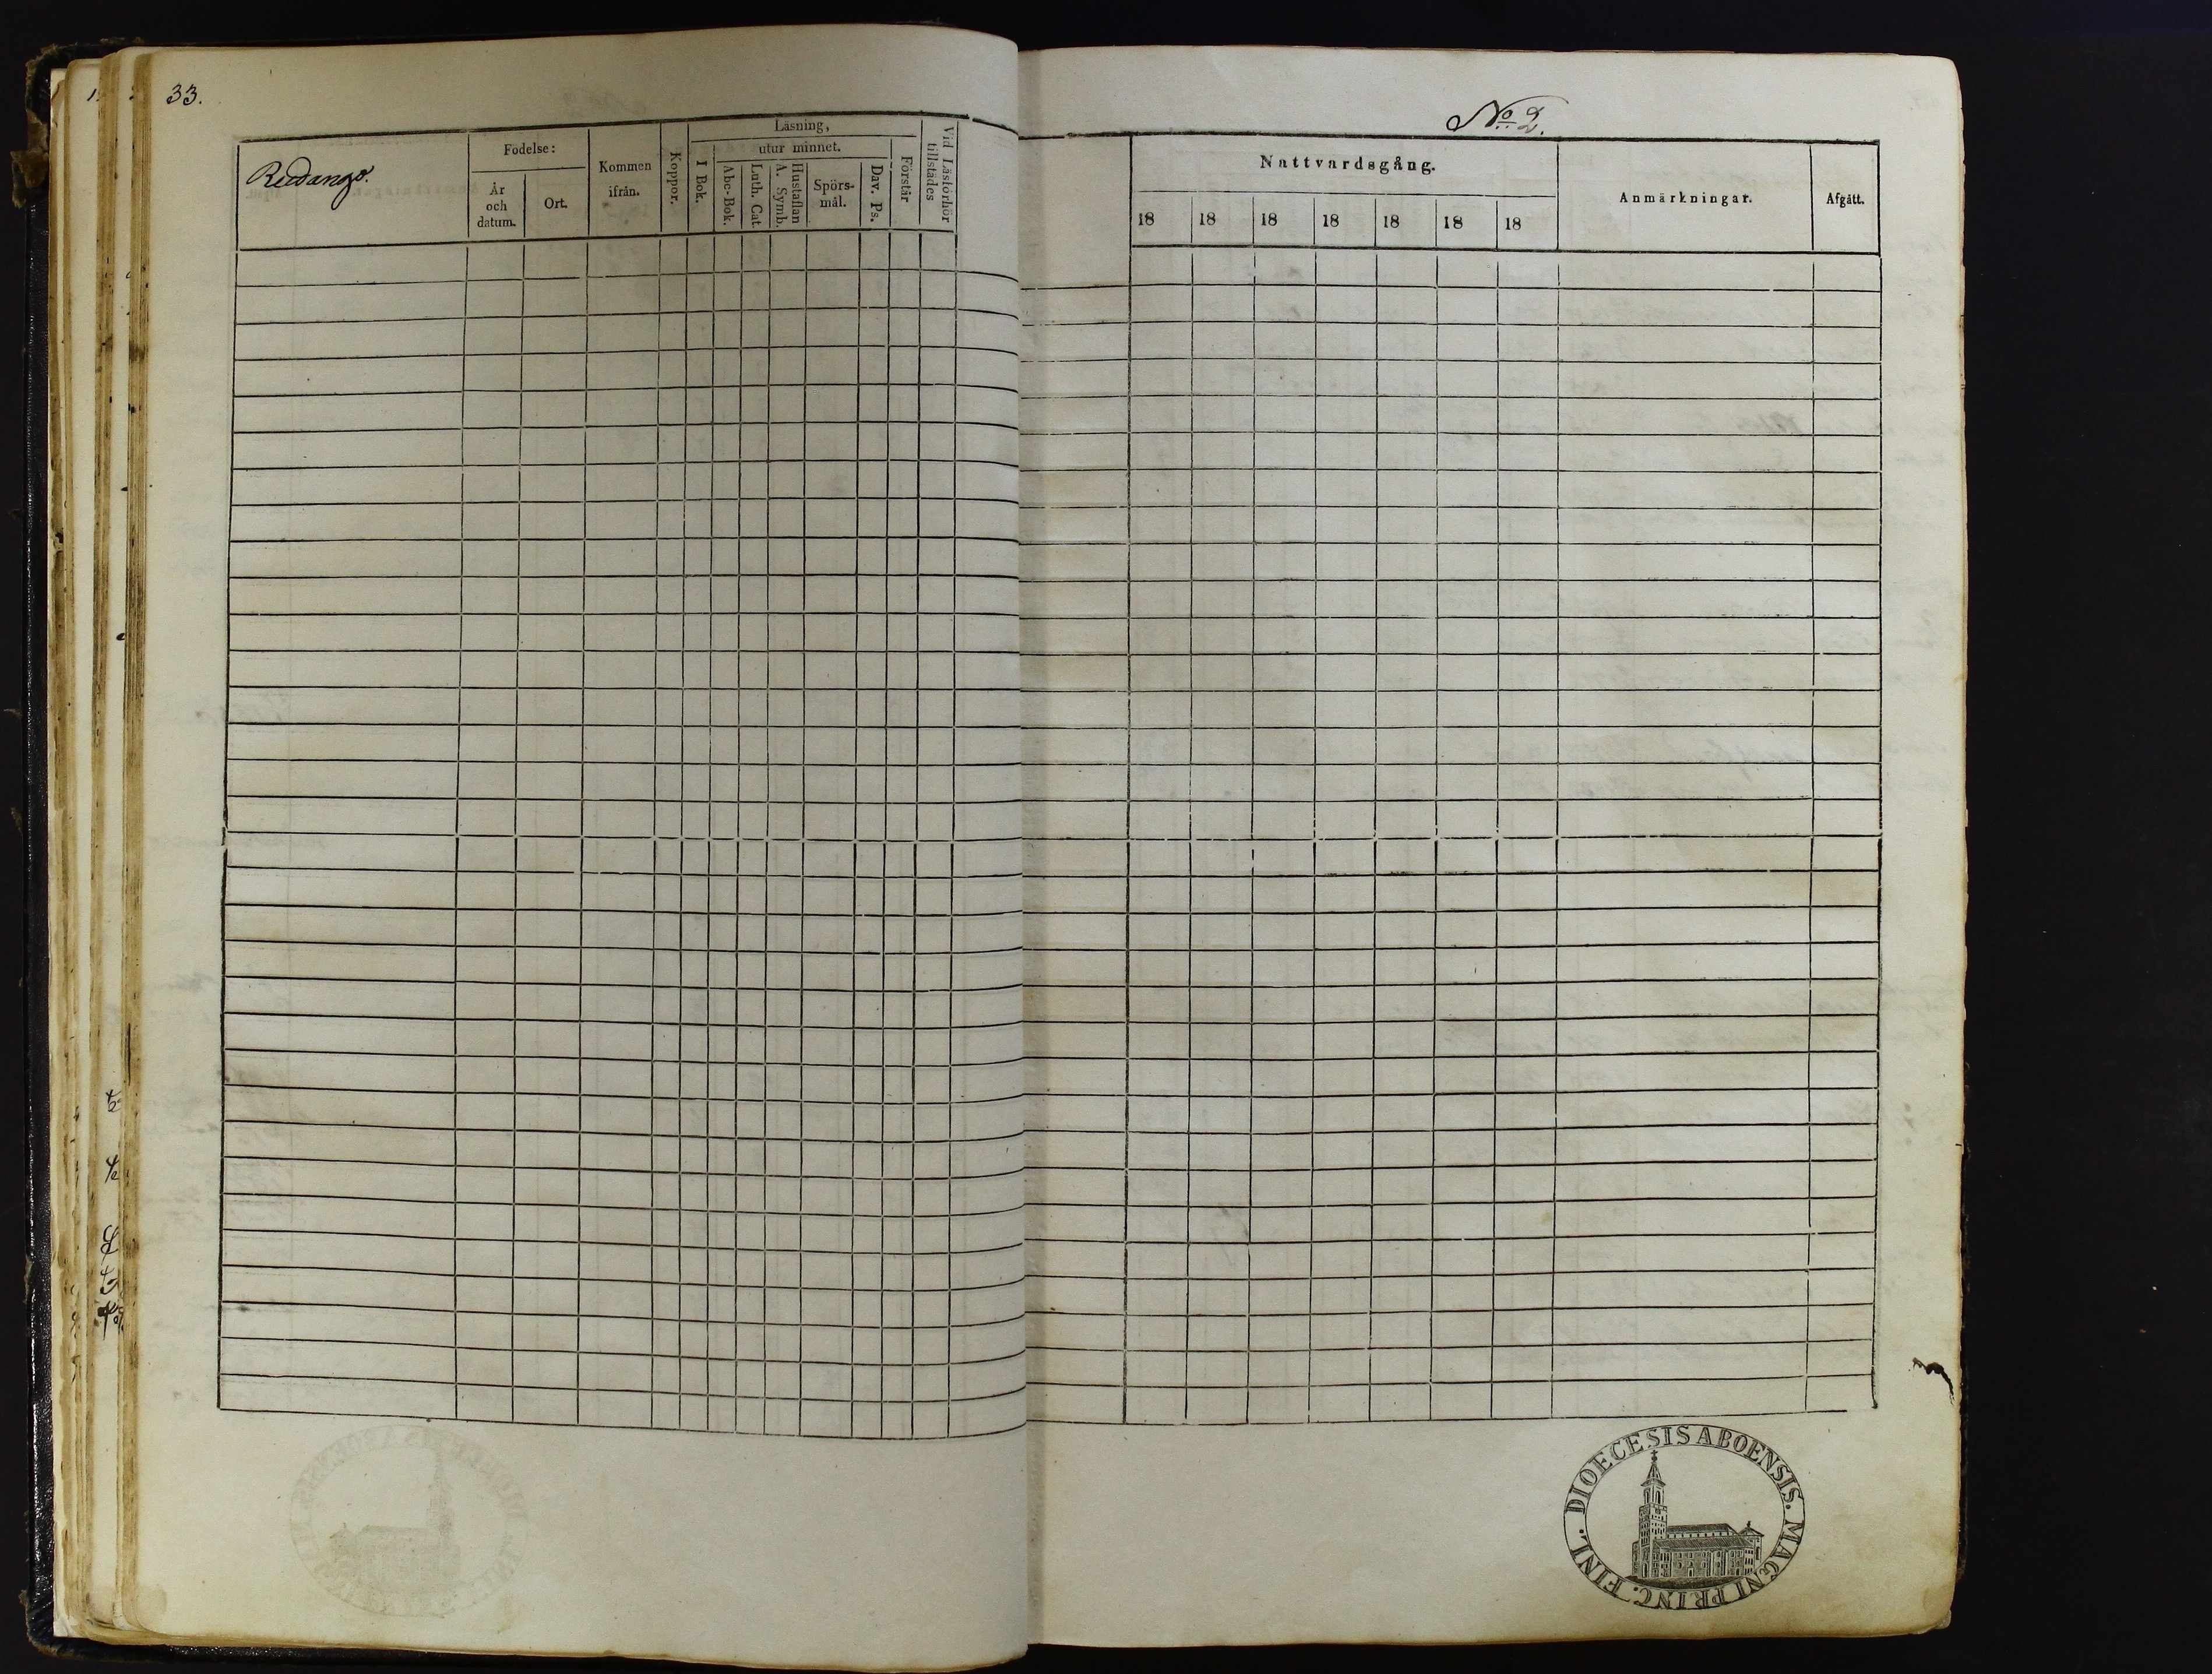 33.
Födelse:
År och datum.
Ort.
Kommen ifrån.
Koppor.
Läsning,
I Bok.
utur minnet.
Abc-Bok.
Luth. Cat.
Hustaflan
A. Symb.
Spörs-
mål.
Dav. Ps.
Förstår
Vid Läsförhör
tillstädes
No 2.
Nattvardsgång.
18 18 18 18 18 18 18
Anmärkningar.
Afgått.
DIOECESIS ABOENSIS. MAGNI PRINC. FINL.